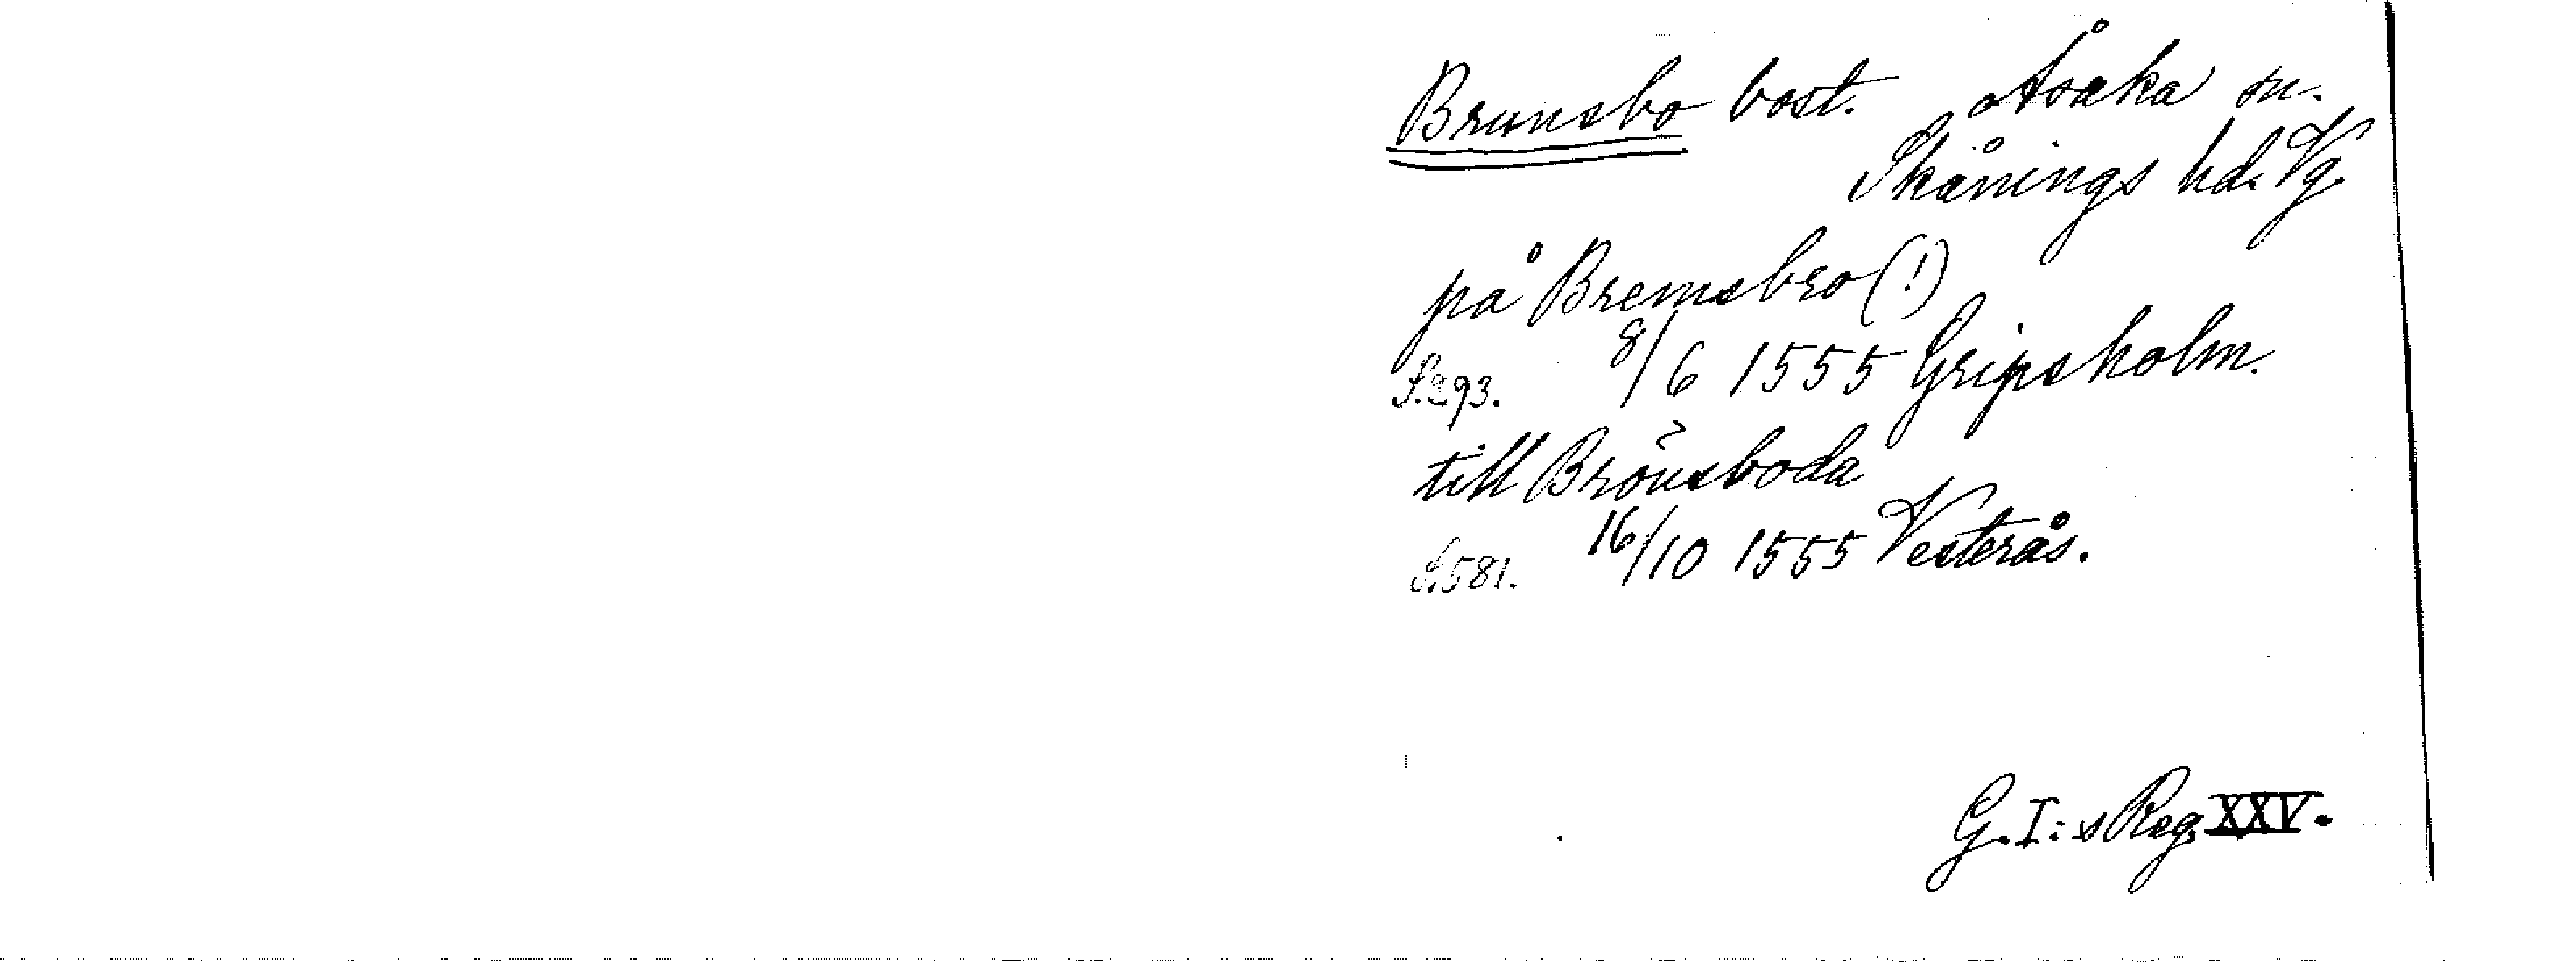 Brunsbo bost. Åsaka sn.
Skånings hd. Vg.
på Bremsbro (!)
S. 293. 8/6 1555 Gripsholm.
till Brönsboda
S. 581. 16/10 1555 Vesterås.
G. I:s Reg. XXV.